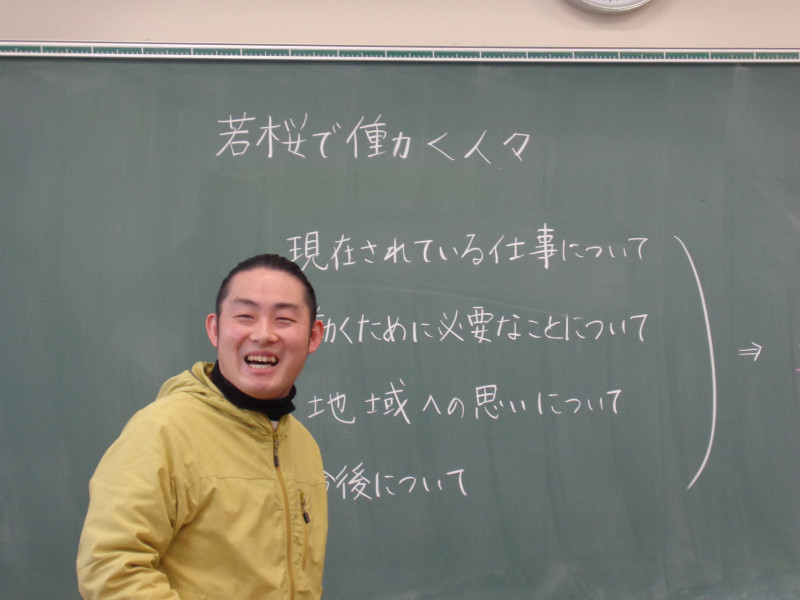 若桜で働く人々
現在されている仕事について
働くために必要なことについて
地域への思いについて
今後について
⇒